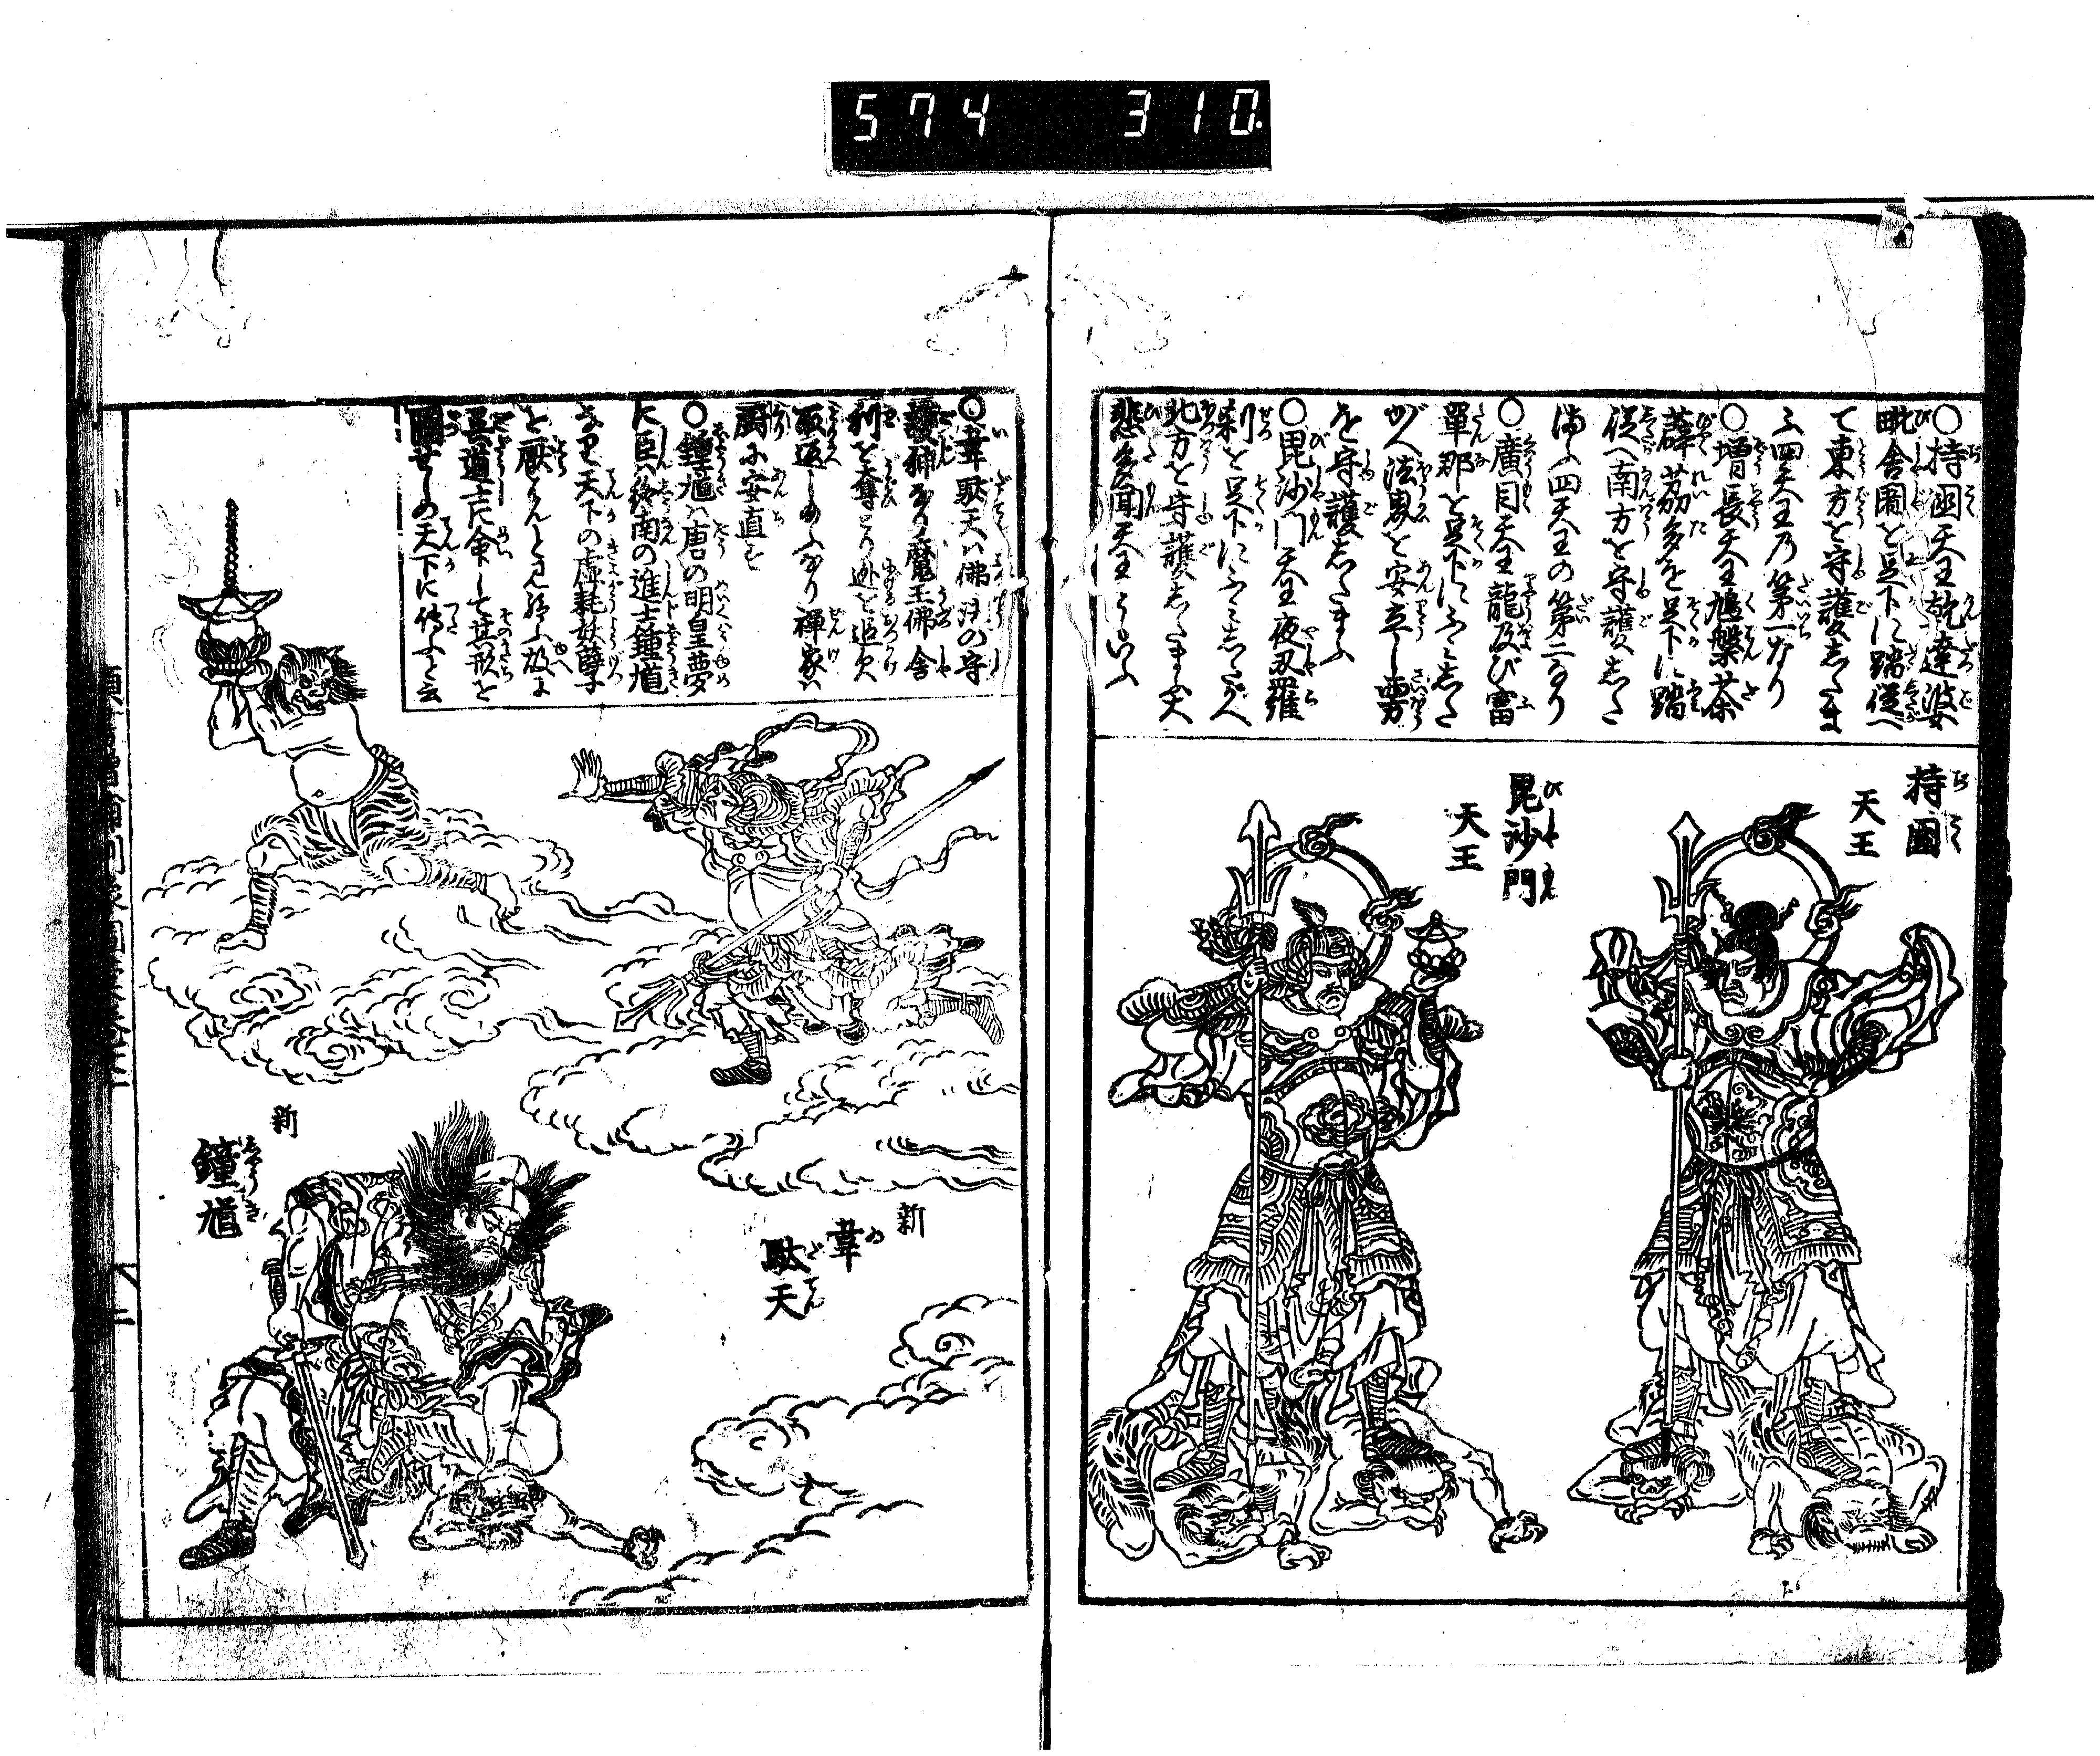 574 310
○持國天王乾達婆
毗舎闍を足下に踏従へ
て東方を守護したま
ふ四天王乃第一なり
○増長天王鳩槃荼
薜茘多を足下に踏
従へ南方を守護した
まふ四天王の第二なり
○廣目天王龍及び富
單那を足下にふみした
がへ法界を安立し西方
を守護したまふ
○毘沙門天王夜叉羅
刹を足下にふみしたがへ
北方を守護したま天
悲多聞天王といふ
持國
天王
毘沙門
天王
○韋駄天ハ佛法の守
護神なり魔王佛舎
利を奪とり逃を追欠
取返しめふなり禅家ハ
厨に安直す
○鐘馗ハ唐の明皇夢
に臣ハ終南の進士鐘馗
なり天下の虚耗妖孽
を厭さんと見給ふ故に
呉道士に命して其形を
圖せしめ天下に傳ふと云
新
韋
駄
天
新
鐘馗